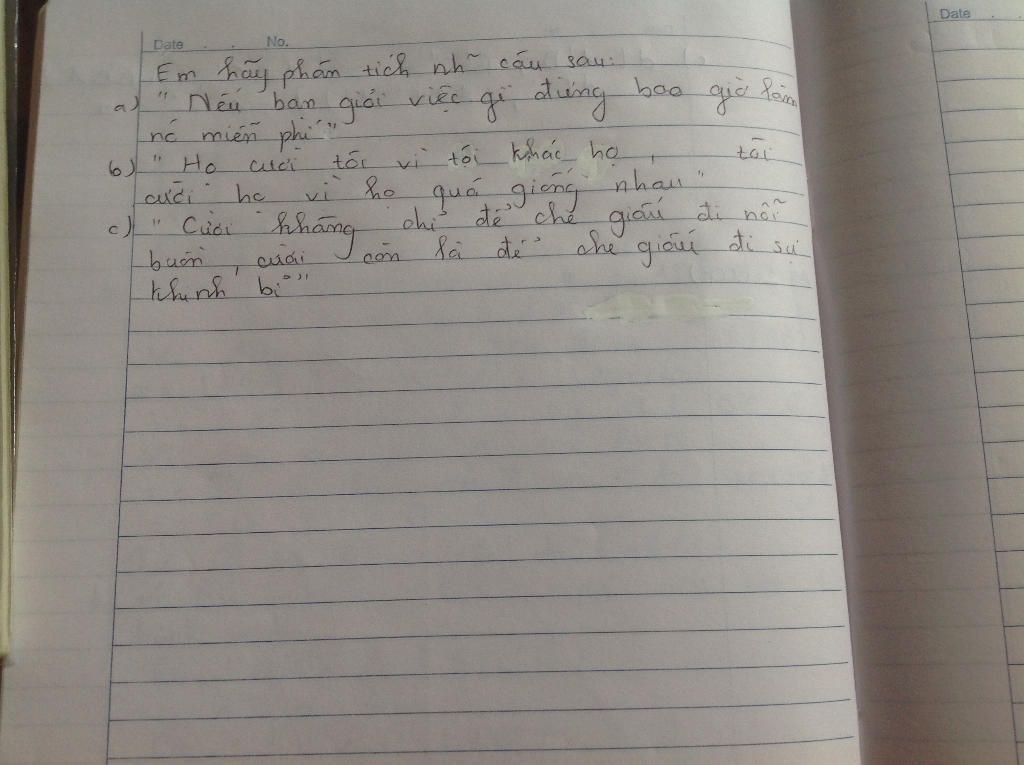 Date . . No.
Date . .
Em hãy phân tích nh~ câu sau:
a) " Nếu bạn giỏi việc gì đừng bao giờ làm
nó miễn phí "
b) " Họ cười tôi vì tôi khác họ , tôi
cười họ vì họ quá giống nhau "
c) " Cười không chỉ để che giấu đi nỗi
buồn , cười còn là để che giấu đi sự
khinh bỉ "